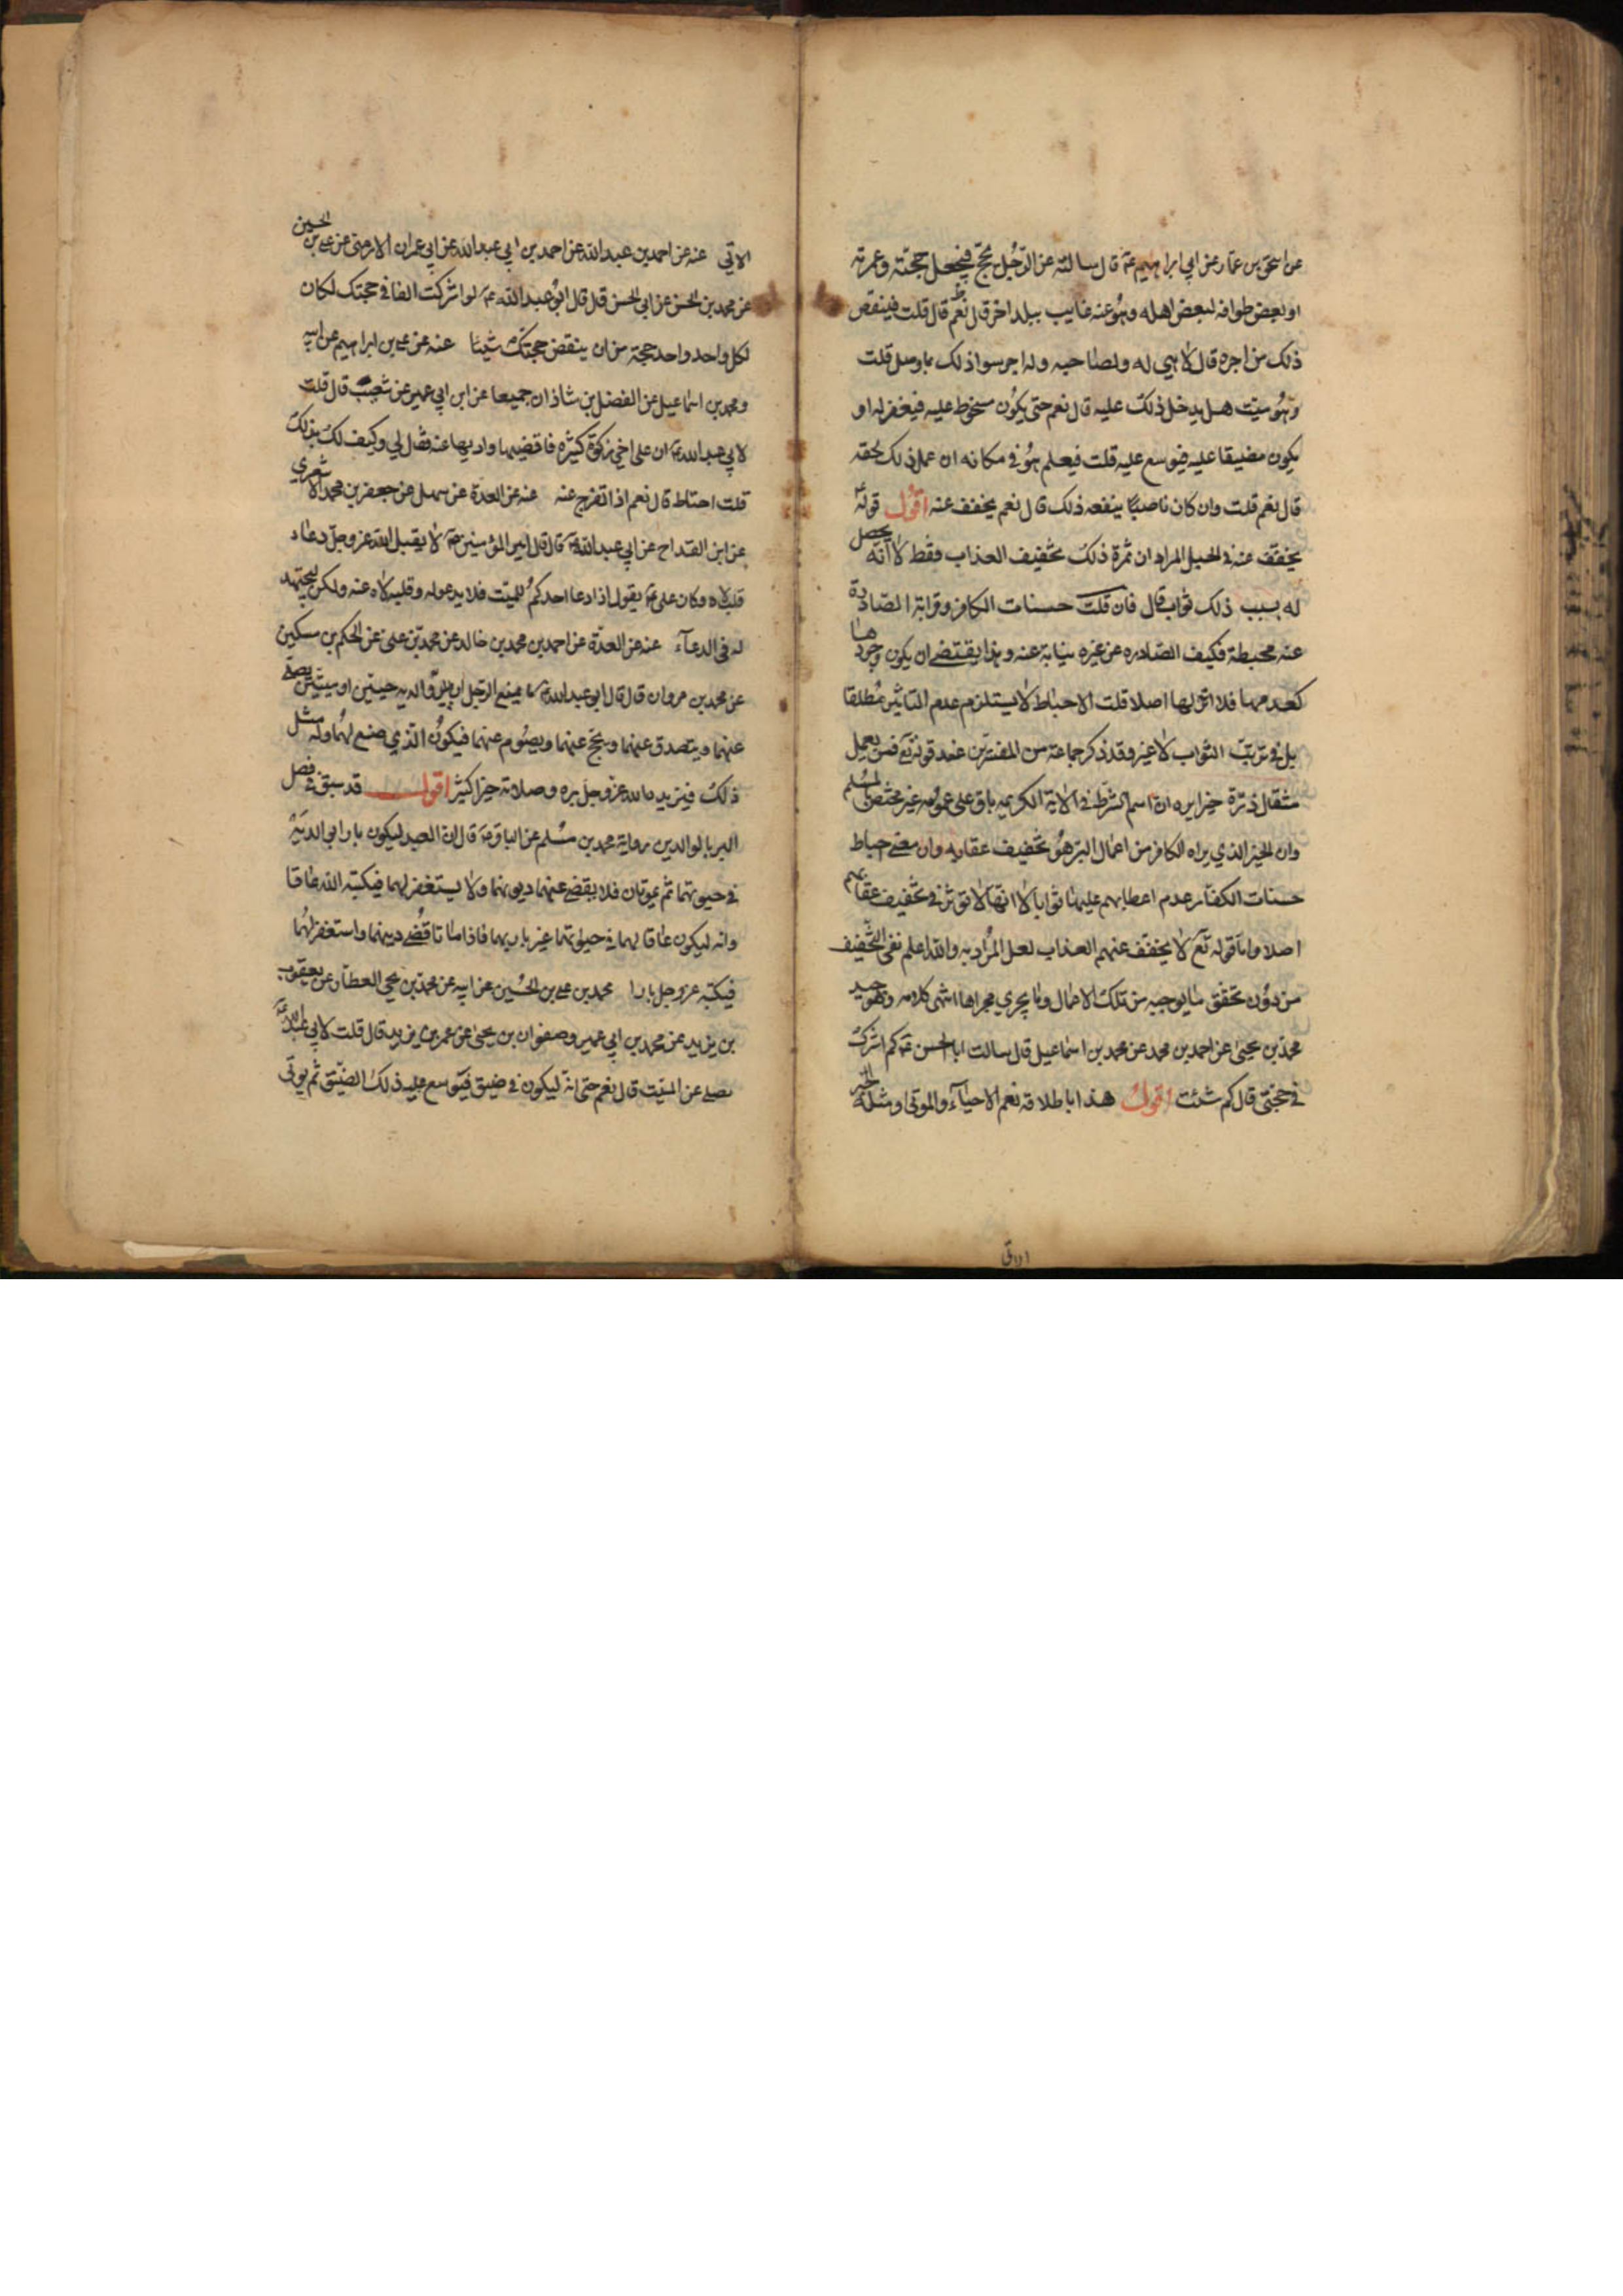 عن اسحق بن عمار عن ابي ابراهيم ع قال سالته عن الرجل يحج فيجعل حجته وعمرته
او بعض طوافه لبعض اهله وهو عنه غايب ببلد اخر قال نعم قال قلت فينقص
ذلك من اجره قال لا هي له ولصاحبه وله اجر سوا ذلك بما وصل قلت
وهو ميت هل يدخل ذلك عليه قال نعم حتى يكون مسخوط عليه فيغفر له او
يكون مضيقا عليه فيوسع عليه قلت فيعلم هو في مكانه ان عمل ذلك لحقه
قال نعم قلت وان كان ناصبيا ينفعه ذلك قال نعم يخفف عنه اقول قوله
يخفف عنه في الحبل المراد ان ثمرة ذلك تخفيف العذاب فقط لا انه يحصل
له بسبب ذلك ثواب قال فان قلت حسنات الكافر وقرابته الصادرة
عنه محبطة فكيف الصادره عن غيره نيابة عنه وهذا يقتضي ان يكون وجودها
كعدمها فلا اثر لها اصلا قلت الاحباط لا يستلزم عدم التاثير مطلقا
بل في ترتب الثواب لا غير وقد ذكر جماعة من المفسرين عند قوله تع فمن يعمل
مثقال ذرة خيرا يره ان اسم الشرط في الاية الكريمه باق على عمومه غير مختص بالمسلم
وان الخير الذي يراه الكافر من اعمال البر هو تخفيف عقابه وان معنى احباط
حسنات الكفار عدم اعطائهم عليها ثوابا لا انها لا تؤثر في تخفيف عقابهم
اصلا واما قوله تع لا يخفف عنهم العذاب لعل المراد به والله اعلم نفى التخفيف
من دون تحقق ما يوجبه من تلك الاعمال وما يجري مجراها انتهى كلامه وهو جيد
محمد بن يحيى عن احمد بن محمد عن محمد بن اسماعيل قال سالت ابا الحسن ع كم اشرك
في حجتي قال كم شئت اقول هذا باطلاقه نعم الاحياء والموتى ومثله الخبر
الاتي عنه عن احمد بن عبد الله عن احمد بن ابي عبد الله عن ابي عمران الارمني عن علي بن الحسين
عن محمد بن الحسن عن ابي الحسن قال قال ابو عبد الله ع لو اشركت الفا في حجتك لكان
لكل واحد واحد حجة من ان ينقض حجتك شيئا عنه عن علي بن ابراهيم عن ابيه
ومحمد بن اسماعيل عن الفضل بن شاذان جميعا عن ابن ابي عمير عن شعيب قال قلت
لابي عبد الله ع ان على اخي زكوة كثيره فاقضيها واديها عنه فقال لي وكيف لك بذلك
قلت احتاط قال نعم اذا تفرج عنه عنه عن العدة عن سهل عن جعفر بن محمد الاشعري
عن ابن القداح عن ابي عبد الله ع قال قال امير المؤمنين ع لا يقبل الله عز وجل دعاء
قلب لاه وكان علي ع يقول اذا دعا احدكم للميت فلا يدعو له وقلبه لاه عنه ولكن ليجتهد
له في الدعاء عنه عن العدة عن احمد بن محمد بن خالد عن محمد بن علي عن الحكم بن مسكين
عن محمد بن مروان قال قال ابو عبد الله ع ما يمنع الرجل ان يبر والديه حيين او ميتين يصلي
عنهما ويتصدق عنهما ويحج عنهما ويصوم عنهما فيكون الذي صنع لهما وله مثل
ذلك فيزيده الله عز وجل ببره وصلاته خيرا كثيرا اقول قد سبق في فصل
البر بالوالدين رواية محمد بن مسلم عن الباقر ع قال ان العبد ليكون بارا بوالديه
في حيوتهما ثم يموتان فلا يقضي عنهما ديونهما ولا يستغفر لهما فيكتبه الله عاقا
وانه ليكون عاقا لهما في حيوتهما غير بار بهما فاذا ماتا قضى دينهما واستغفر لهما
فيكتبه عز وجل بارا محمد بن علي بن الحسين عن ابيه عن محمد بن يحيى العطار عن يعقوب
بن يزيد عن محمد بن ابي عمير وصفوان بن يحيى عن عمر بن يزيد قال قلت لابي عبد الله ع
نصلي عن الميت قال نعم حتى انه ليكون في ضيق فيوسع عليه ذلك الضيق ثم يوتى